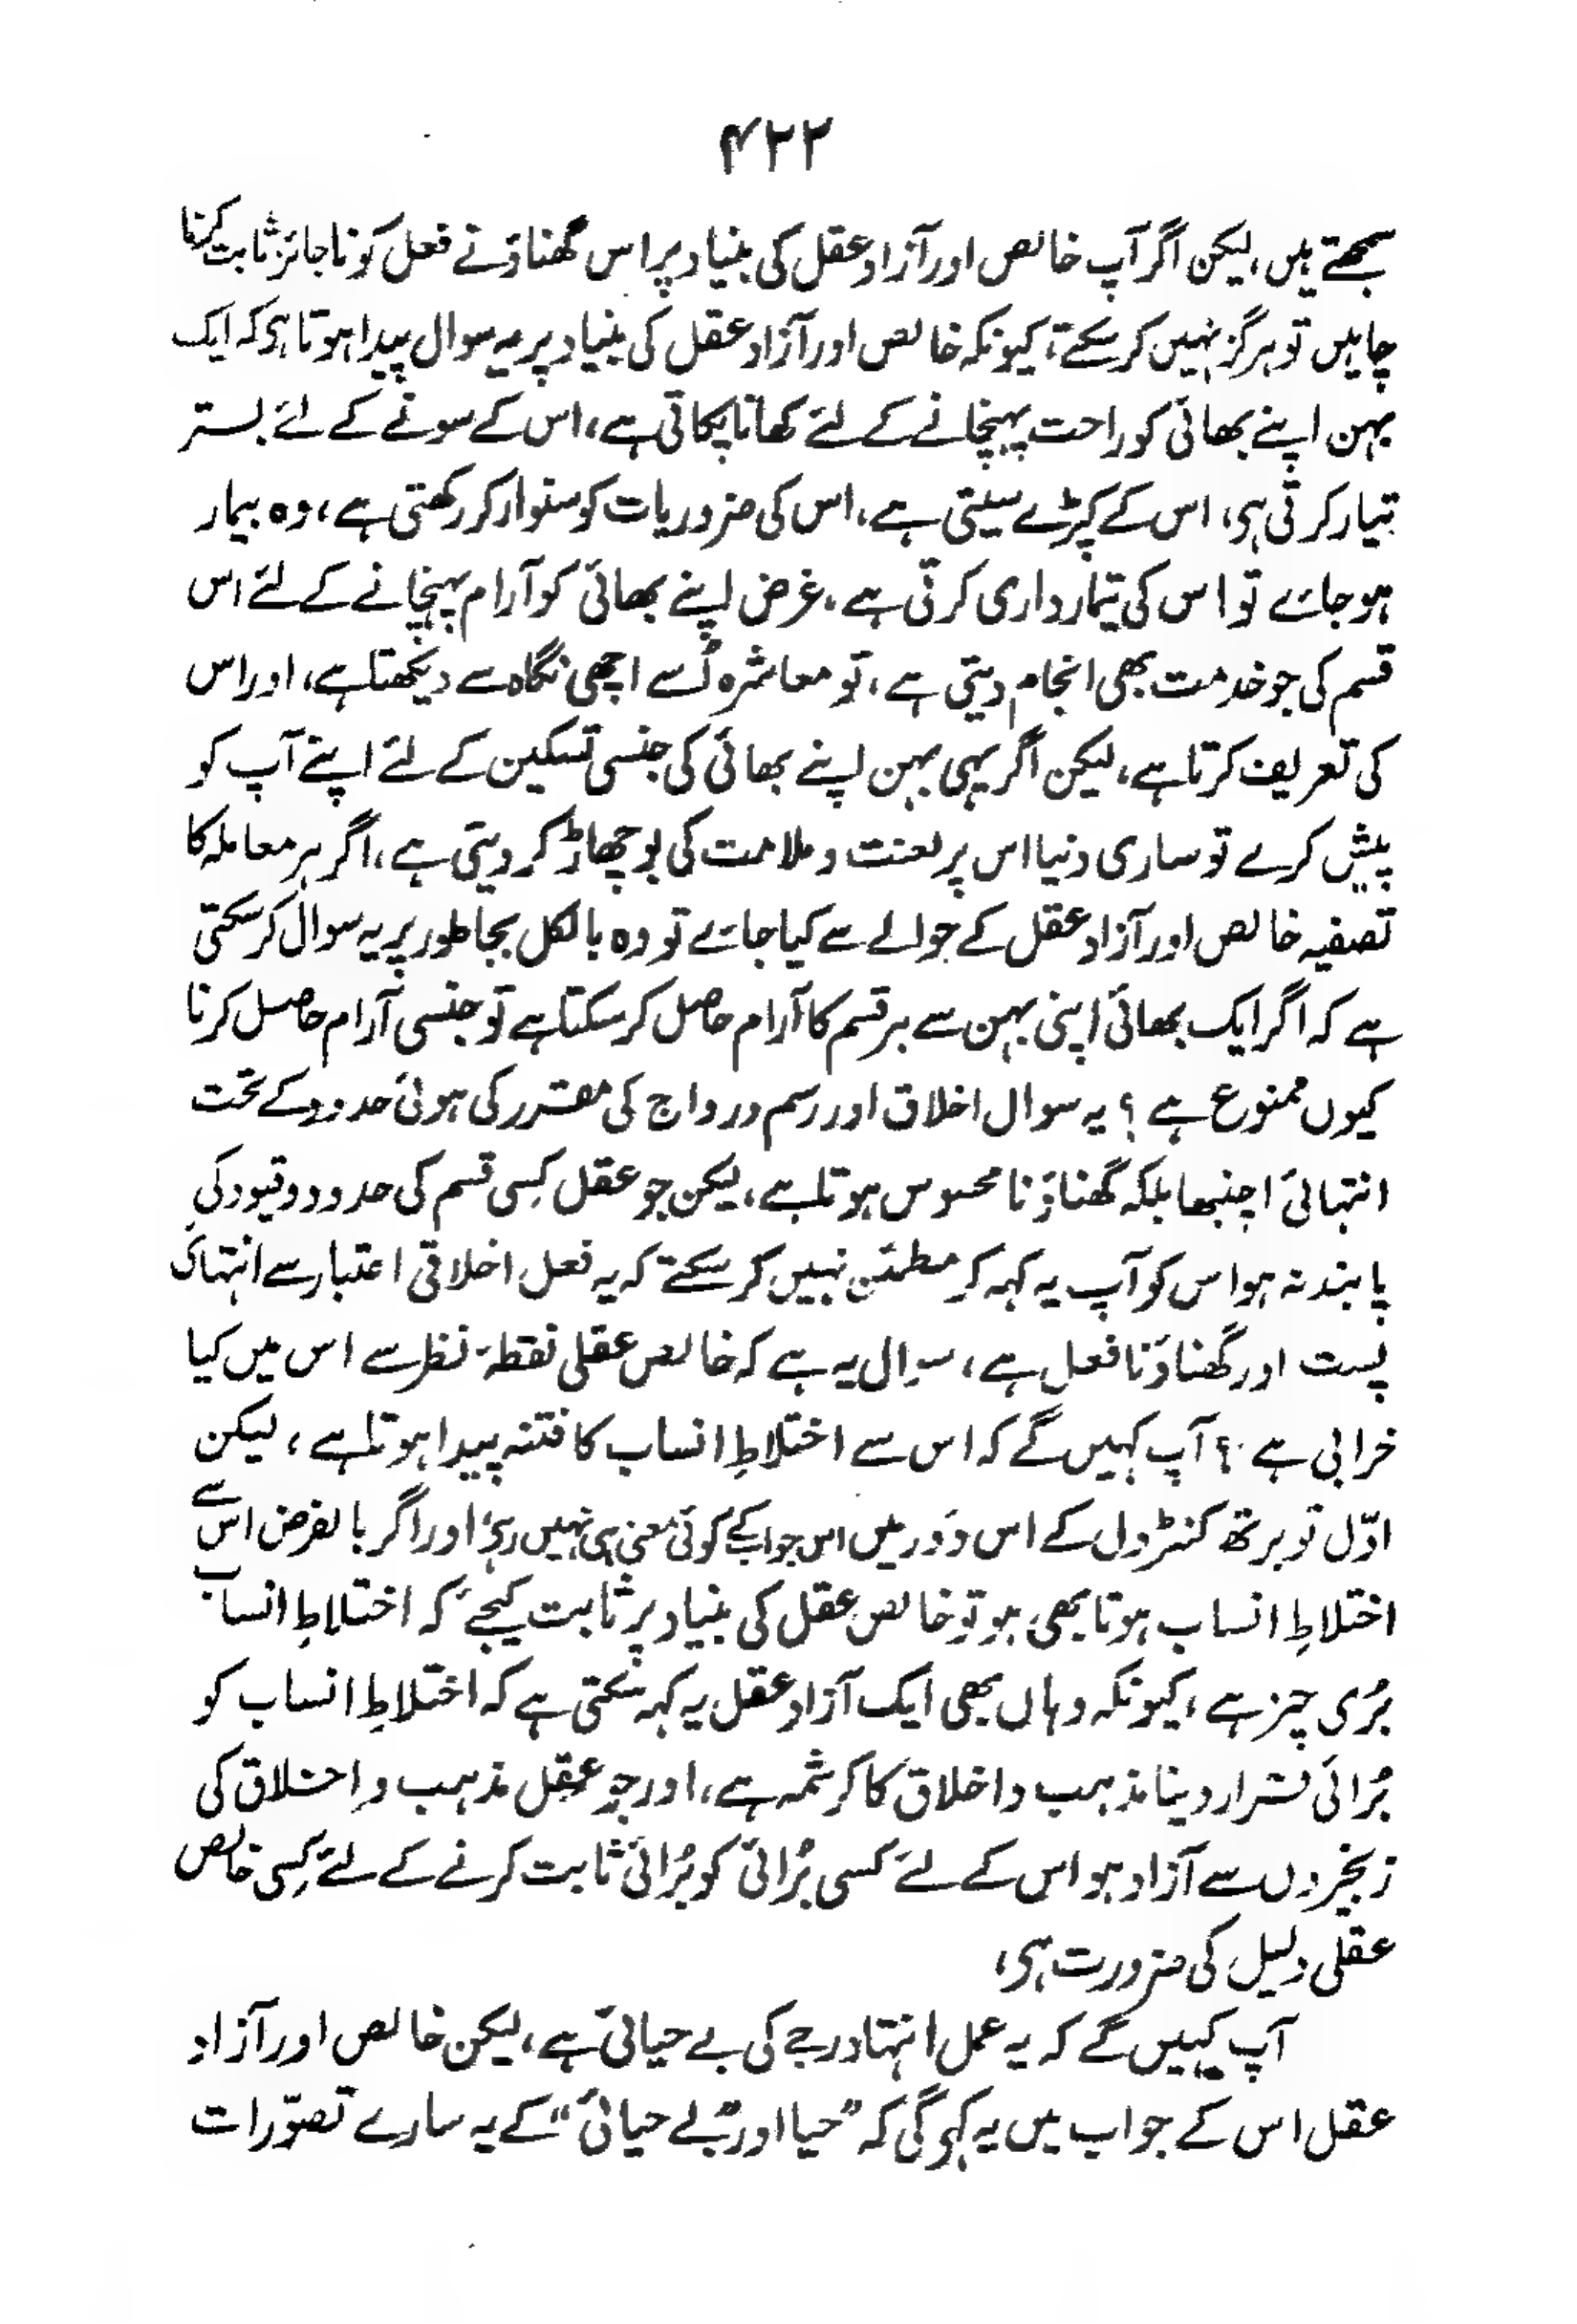 ۴۲۲
سمجھتے ہیں، لیکن اگر آپ خالص اور آزاد عقل کی بنیاد پر اس گھناؤنے فعل کو ناجائز ثابت کرنا
چاہیں تو ہرگز نہیں کر سکتے، کیونکہ خالص اور آزاد عقل کی بنیاد پر یہ سوال پیدا ہوتا ہی کہ ایک
بہن اپنے بھائی کو راحت پہنچانے کے لئے کھانا پکاتی ہے، اس کے سونے کے لئے بستر
تیار کرتی ہی، اس کے کپڑے سیتی ہے، اس کی ضروریات کو سنوار کر رکھتی ہے، وہ بیمار
ہو جائے تو اس کی تیمارداری کرتی ہے، غرض اپنے بھائی کو آرام پہنچانے کے لئے اس
قسم کی جو خدمت بھی انجام دیتی ہے، تو معاشرہ اُسے اچھی نگاہ سے دیکھتا ہے، اور اس
کی تعریف کرتا ہے، لیکن اگر یہی بہن اپنے بھائی کی جنسی تسکین کے لئے اپنے آپ کو
پیش کرے تو ساری دنیا اس پر لعنت و ملامت کی بوچھاڑ کر دیتی ہے، اگر ہر معاملہ کا
تصفیہ خالص اور آزاد عقل کے حوالے سے کیا جائے تو وہ بالکل بجا طور پر یہ سوال کر سکتی
ہے کہ اگر ایک بھائی اپنی بہن سے ہر قسم کا آرام حاصل کر سکتا ہے تو جنسی آرام حاصل کرنا
کیوں ممنوع ہے ؟ یہ سوال اخلاق اور رسم و رواج کی مقرر کی ہوئی حدود کے تحت
انتہائی اچنبھا بلکہ گھناؤنا محسوس ہوتا ہے، لیکن جو عقل کِسی قسم کی حدود و قیود کی
پابند نہ ہو اس کو آپ یہ کہہ کر مطمئن نہیں کر سکتے کہ یہ فعل اخلاقی اعتبار سے انتہائی
پست اور گھناؤنا فعل ہے، سوال یہ ہے کہ خالص عقلی نقطۂ نظر سے اس میں کیا
خرابی ہے ؟ آپ کہیں گے کہ اس سے اختلاطِ انساب کا فتنہ پیدا ہوتا ہے، لیکن
اوّل تو برتھ کنٹرول کے اس دَور میں اس جواب کے کوئی معنی ہی نہیں رہے، اور اگر بالفرض اس سے
اختلاطِ انساب ہوتا بھی ہو تو خالص عقل کی بنیاد پر ثابت کیجئے کہ اختلاطِ انساب
بُری چیز ہے، کیونکہ وہاں بھی ایک آزاد عقل یہ کہہ سکتی ہے کہ اختلاطِ انساب کو
بُرائی قرار دینا مذہب و اخلاق کا کرشمہ ہے، اور جو عقل مذہب و اخلاق کی
زنجیروں سے آزاد ہو اس کے لئے کسی بُرائی کو بُرائی ثابت کرنے کے لئے کِسی خالص
عقلی دلیل کی ضرورت ہی،
آپ کہیں گے کہ یہ عمل انتہا درجے کی بے حیائی ہے، لیکن خالص اور آزاد
عقل اس کے جواب میں یہ کہی گی کہ ”حیا“ اور ”بے حیائی“ کے یہ سارے تصوّرات